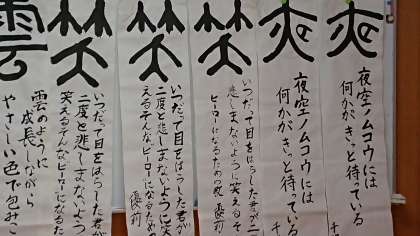 夜空ノムコウには
何かがきっと待っている
夜空ノムコウには
何かがきっと待っている
いつだって目をはらした君が二
度と悲しまないように笑えるそ
ヒーローになるための
優莉
いつだって目をはらした君が
二度と悲しまないように笑
えるそんなヒーローになるため
優莉
いつだって目をはらした君が
二度と悲しまないよう
笑えるそんなヒーローになるた
雲
雲のように
成長しながら
やさしい色で包みこ